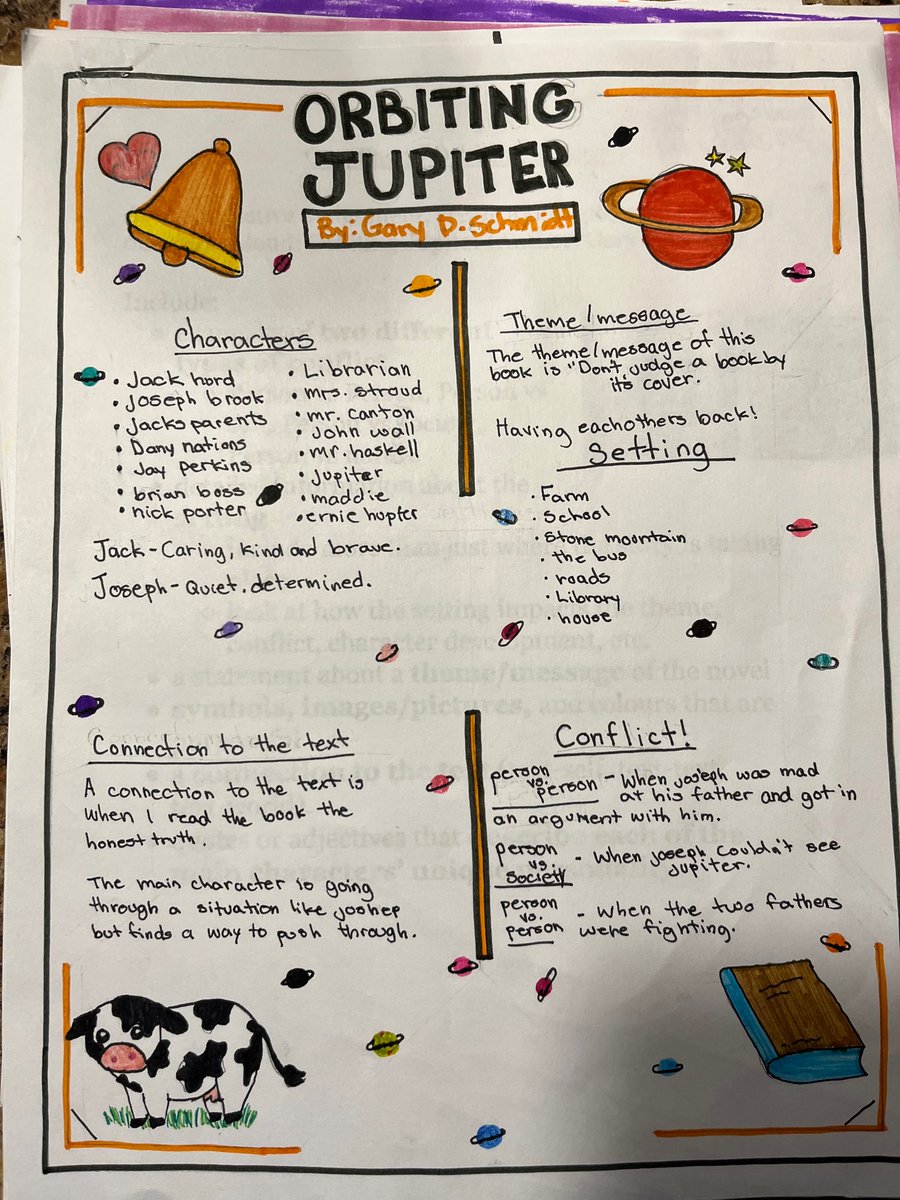 ORBITING
JUPITER
By: Gary D. Schmidt
Characters
• Jack hord
• Joseph brook
• Jacks parents
• Dany nations
• Jay perkins
• brian boss
• nick porter
• Librarian
• mrs. stroud
• mr. canton
• John wall
• mr. haskell
• Jupiter
• maddie
• ernie hupfer
Jack - Caring, kind and brave.
Joseph - Quiet. determined.
Theme/message
The theme/message of this
book is "Don't judge a book by
its cover.
Having eachothers back!
Setting
• Farm
• School
• stone mountain
• the bus
• roads
• Library
• house
Connection to the text
A connection to the text is
when I read the book the
honest truth.
The main character is going
through a situation like joshep
but finds a way to push through.
Conflict!
person vs. person - When joseph was mad
at his father and got in
an argument with him.
person vs. society - When joseph couldn't see
Jupiter.
person vs. person - when the two fathers
were fighting.